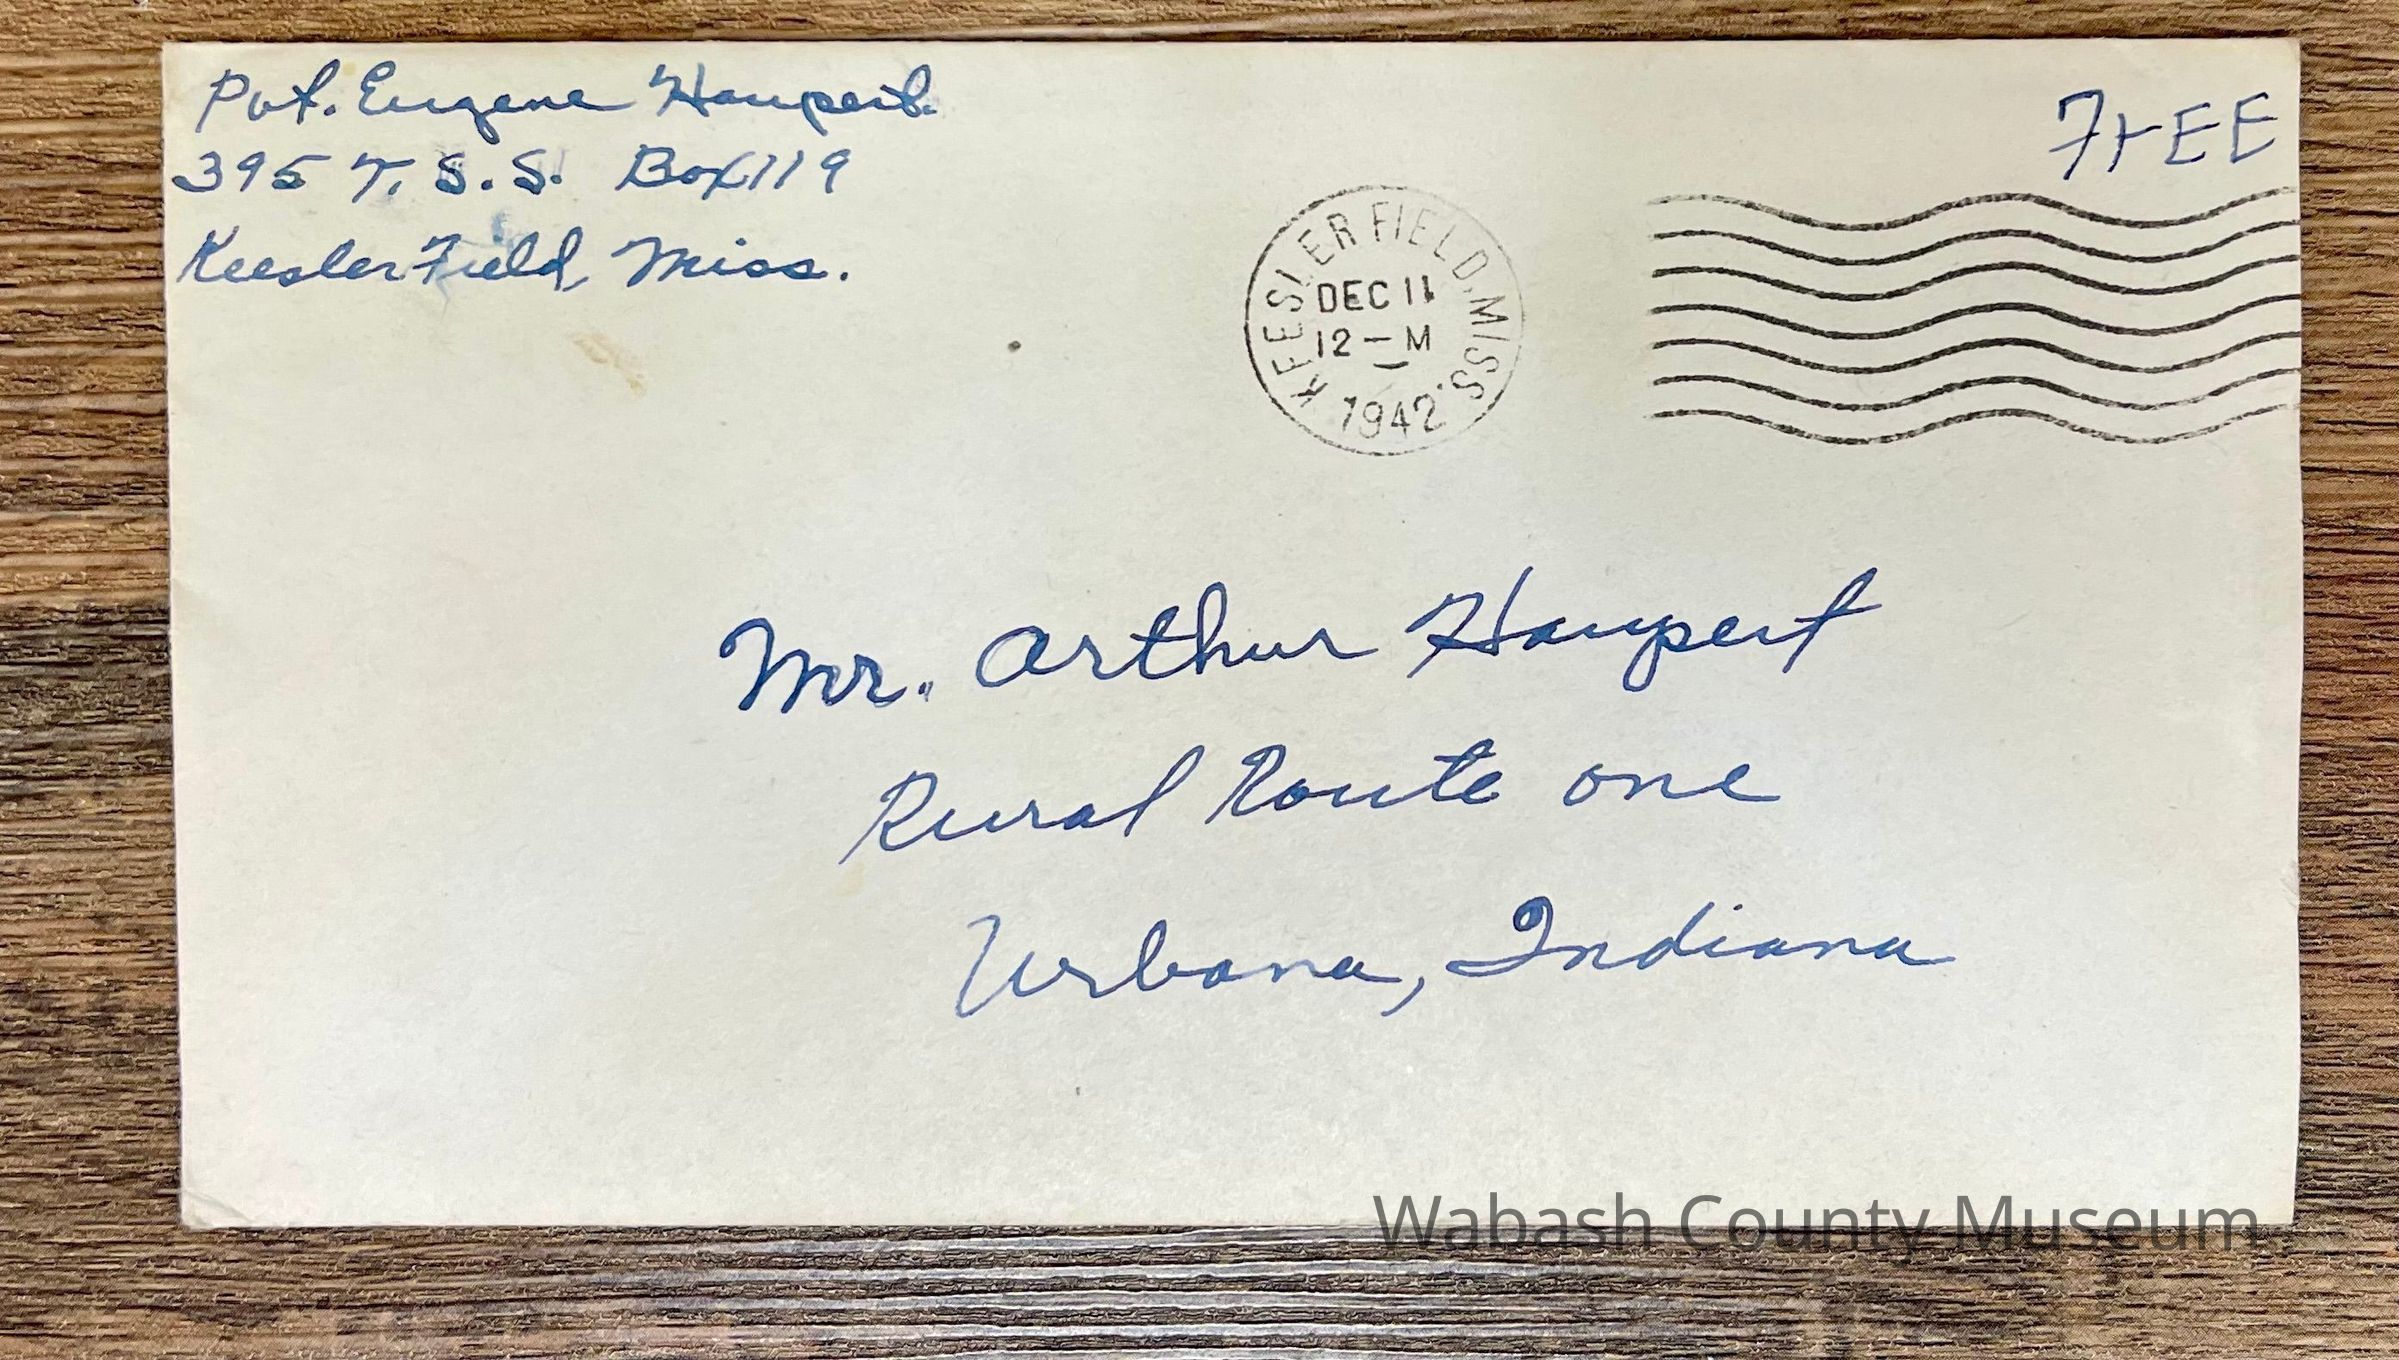 Pvt. Eugene Haupert.
395 T. S. S. Box 119
Keesler Field, Miss.
FrEE
KEESLER FIELD, MISS.
DEC 11
12 – M
1942
Mr. Arthur Haupert
Rural Route one
Urbana, Indiana
Wabash County Museum